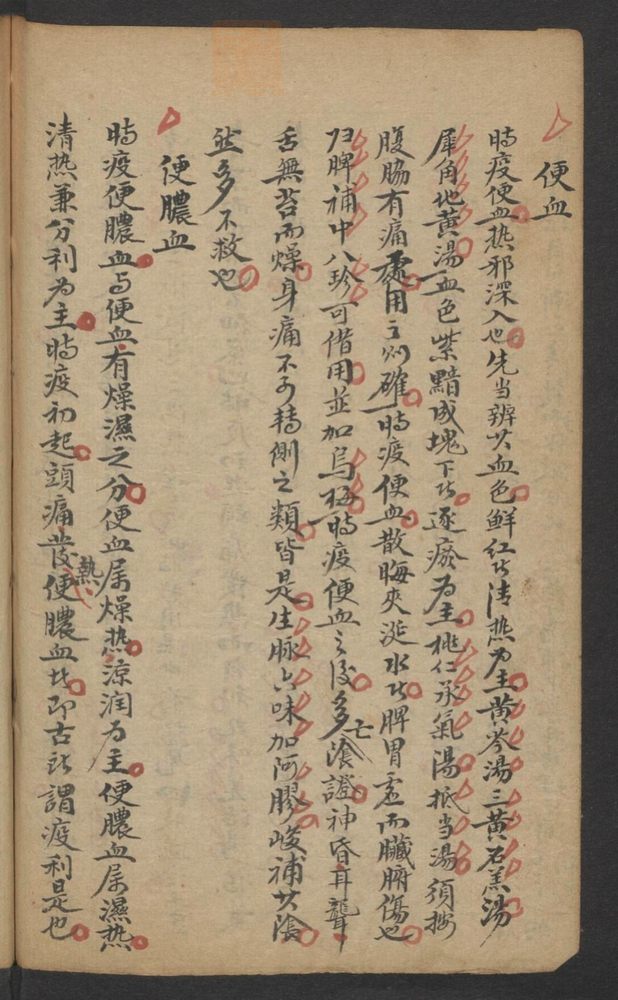 便血
時疫便血热邪深入也先当辨其血色鲜红者清热为主黄芩湯三黄石羔湯
犀角地黄湯血色紫黯成塊下者逐瘀为主桃仁承氣湯抵当湯須按
腹脇有痛處用之則確時疫便血散晦夾涎水者脾胃虛而臟腑傷也
归脾補中八珍可借用並加烏梅時疫便血之後多亡陰證神昏耳聾
舌無苔而燥身痛不可转側之類皆是生脉六味加阿膠峻補其陰
然多不救也
便膿血
時疫便膿血与便血有燥濕之分便血属燥热涼润为主便膿血属濕热
清热兼分利为主時疫初起頭痛發熱便膿血者即古所謂疫利是也